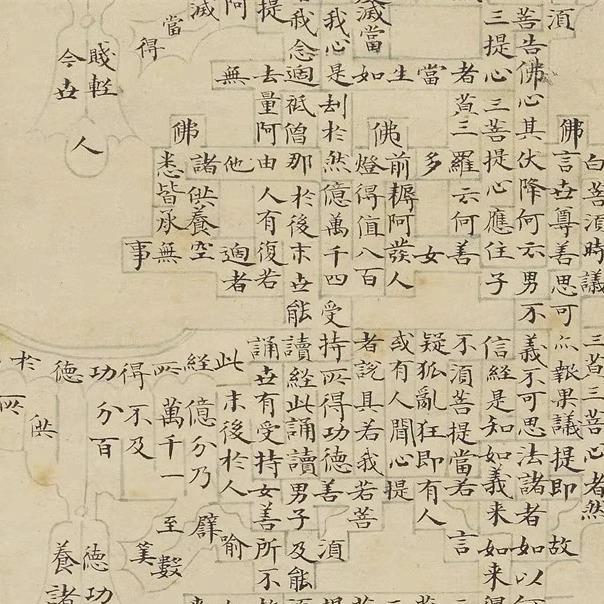 白菩須時議三菩三菩心者然
須佛言世尊善思可報果議提即故
菩告佛心其伏降何云男不義不可思法諸者如以何
三提心三菩提心應住子信經是知如義来如来得
者三羅云何善不須菩提當若言
當多女疑狐亂狂即有人
生佛前耨阿發人或有人聞心提
滅當如燈得值八百者說具若我若菩
我心是刦於然億萬千四受持所得功德善須
我念過祇僧那於後末世能讀經此誦讀男子及能
提去量阿由人有復若誦世有受持女善所不
阿無他過者此末後於人喻
滅諸供養空經億分乃譬
當佛悉皆承無所萬千一至數
得事得不及筭
賤輕人功分百德功
今世德養諸
於供
所